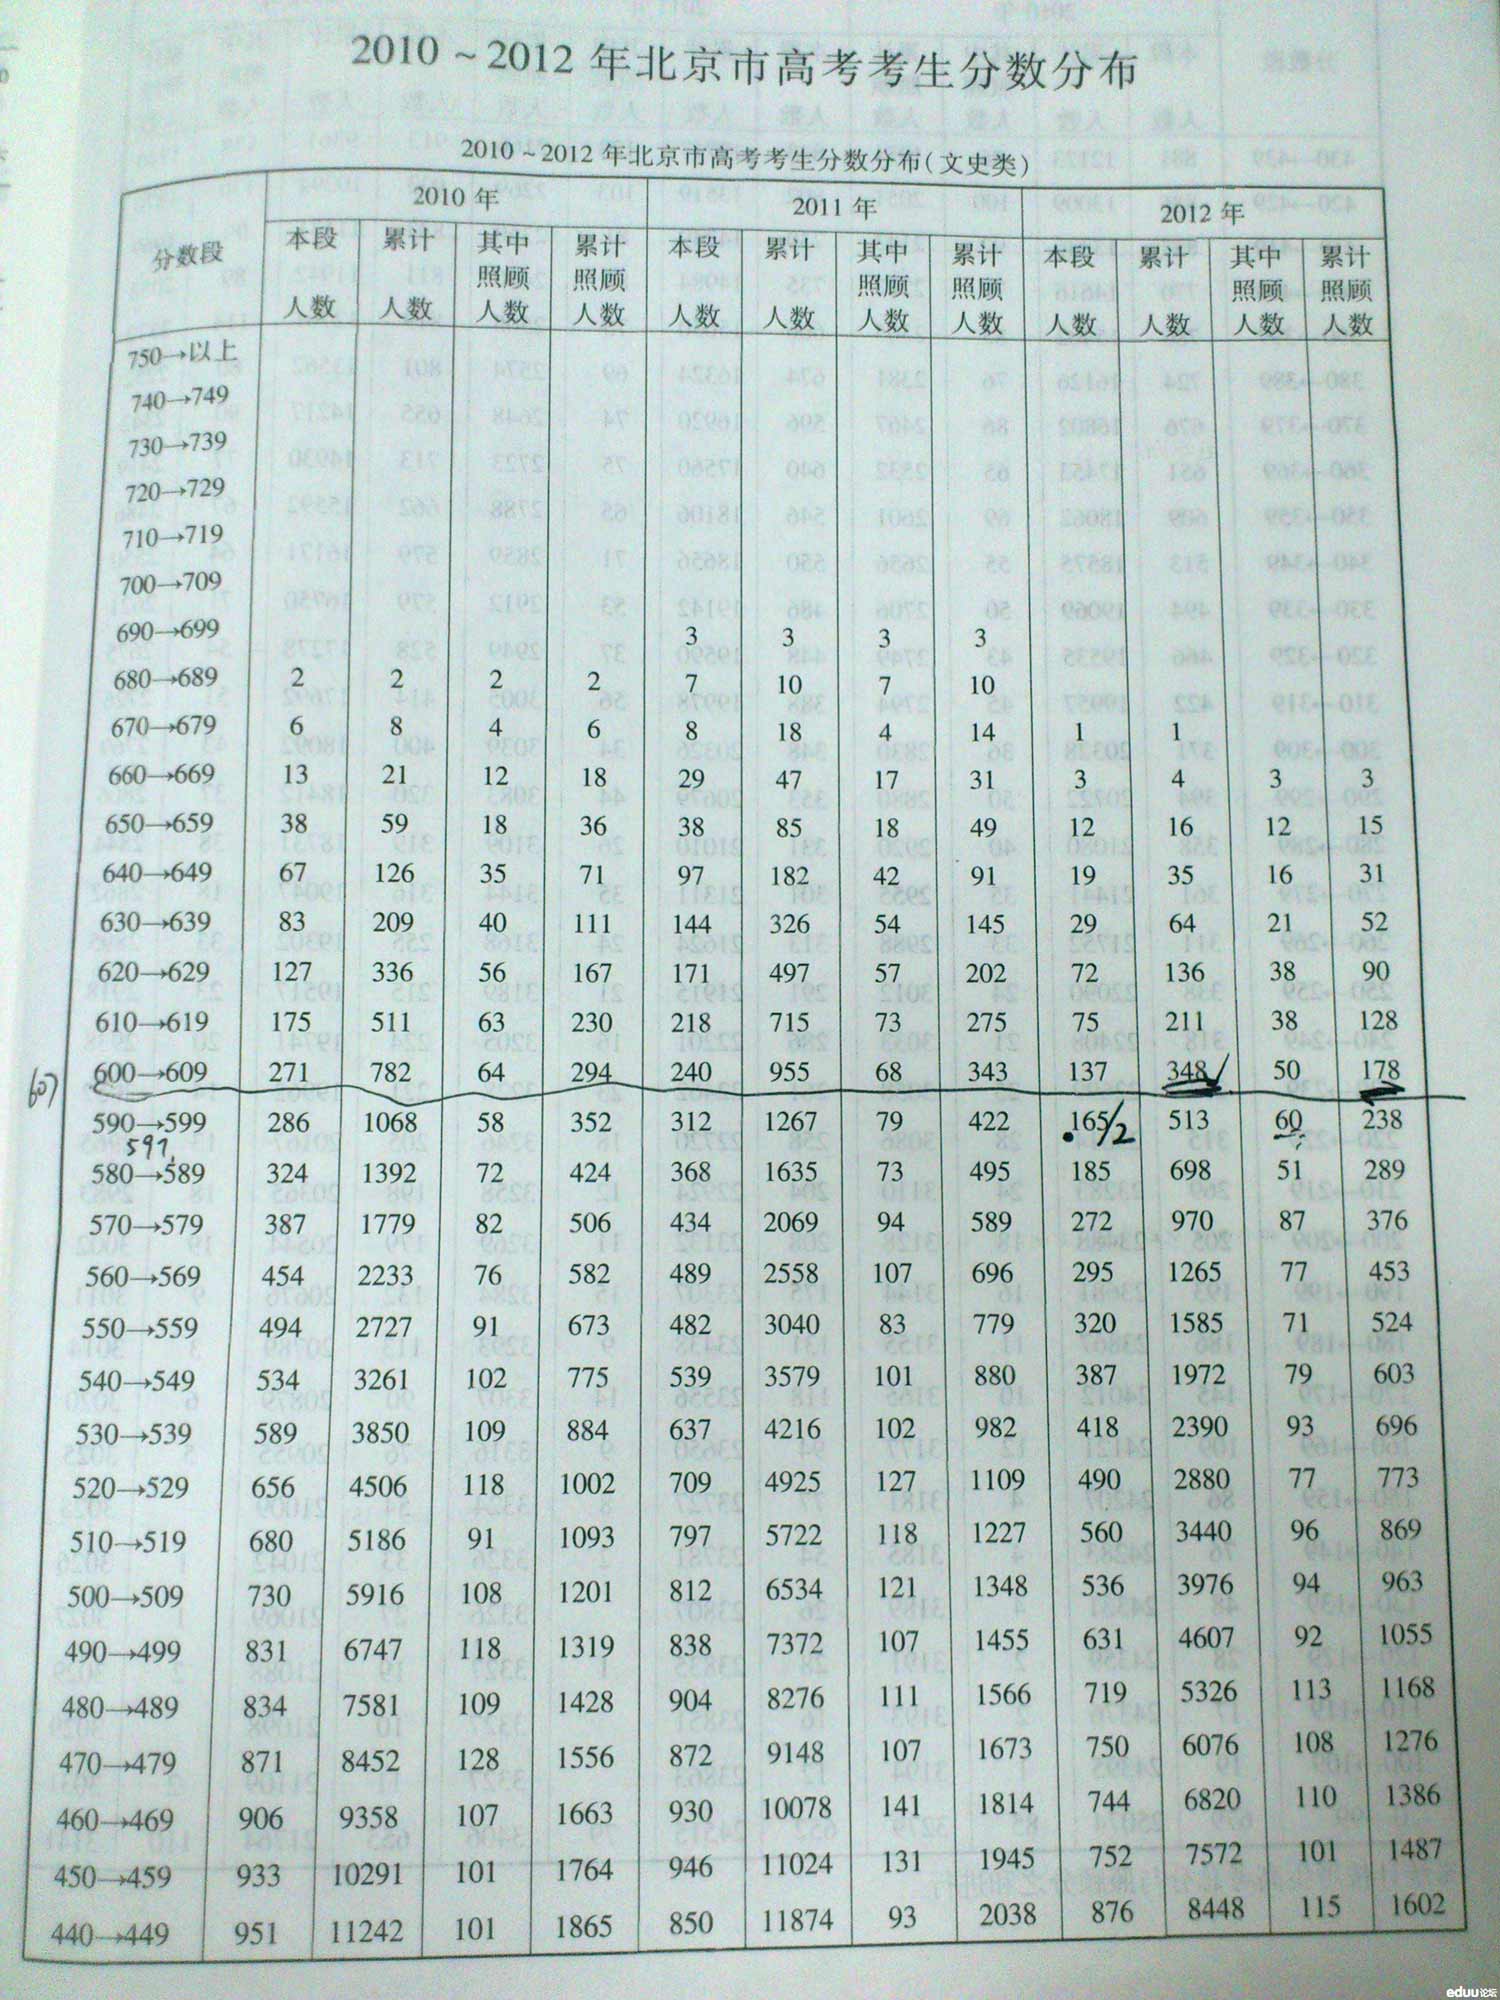 2010～2012年北京市高考考生分数分布
2010～2012年北京市高考考生分数分布(文史类)
分数段 2010年 2011年 2012年
本段人数 累计人数 其中照顾人数 累计照顾人数 本段人数 累计人数 其中照顾人数 累计照顾人数 本段人数 累计人数 其中照顾人数 累计照顾人数
750→以上
740→749
730→739
720→729
710→719
700→709
690→699 3 3 3 3
680→689 2 2 2 2 7 10 7 10
670→679 6 8 4 6 8 18 4 14 1 1
660→669 13 21 12 18 29 47 17 31 3 4 3 3
650→659 38 59 18 36 38 85 18 49 12 16 12 15
640→649 67 126 35 71 97 182 42 91 19 35 16 31
630→639 83 209 40 111 144 326 54 145 29 64 21 52
620→629 127 336 56 167 171 497 57 202 72 136 38 90
610→619 175 511 63 230 218 715 73 275 75 211 38 128
600→609 271 782 64 294 240 955 68 343 137 348 50 178
590→599 286 1068 58 352 312 1267 79 422 165/2 513 60 238
597
580→589 324 1392 72 424 368 1635 73 495 185 698 51 289
570→579 387 1779 82 506 434 2069 94 589 272 970 87 376
560→569 454 2233 76 582 489 2558 107 696 295 1265 77 453
550→559 494 2727 91 673 482 3040 83 779 320 1585 71 524
540→549 534 3261 102 775 539 3579 101 880 387 1972 79 603
530→539 589 3850 109 884 637 4216 102 982 418 2390 93 696
520→529 656 4506 118 1002 709 4925 127 1109 490 2880 77 773
510→519 680 5186 91 1093 797 5722 118 1227 560 3440 96 869
500→509 730 5916 108 1201 812 6534 121 1348 536 3976 94 963
490→499 831 6747 118 1319 838 7372 107 1455 631 4607 92 1055
480→489 834 7581 109 1428 904 8276 111 1566 719 5326 113 1168
470→479 871 8452 128 1556 872 9148 107 1673 750 6076 108 1276
460→469 906 9358 107 1663 930 10078 141 1814 744 6820 110 1386
450→459 933 10291 101 1764 946 11024 131 1945 752 7572 101 1487
440→449 951 11242 101 1865 850 11874 93 2038 876 8448 115 1602
eduu论坛